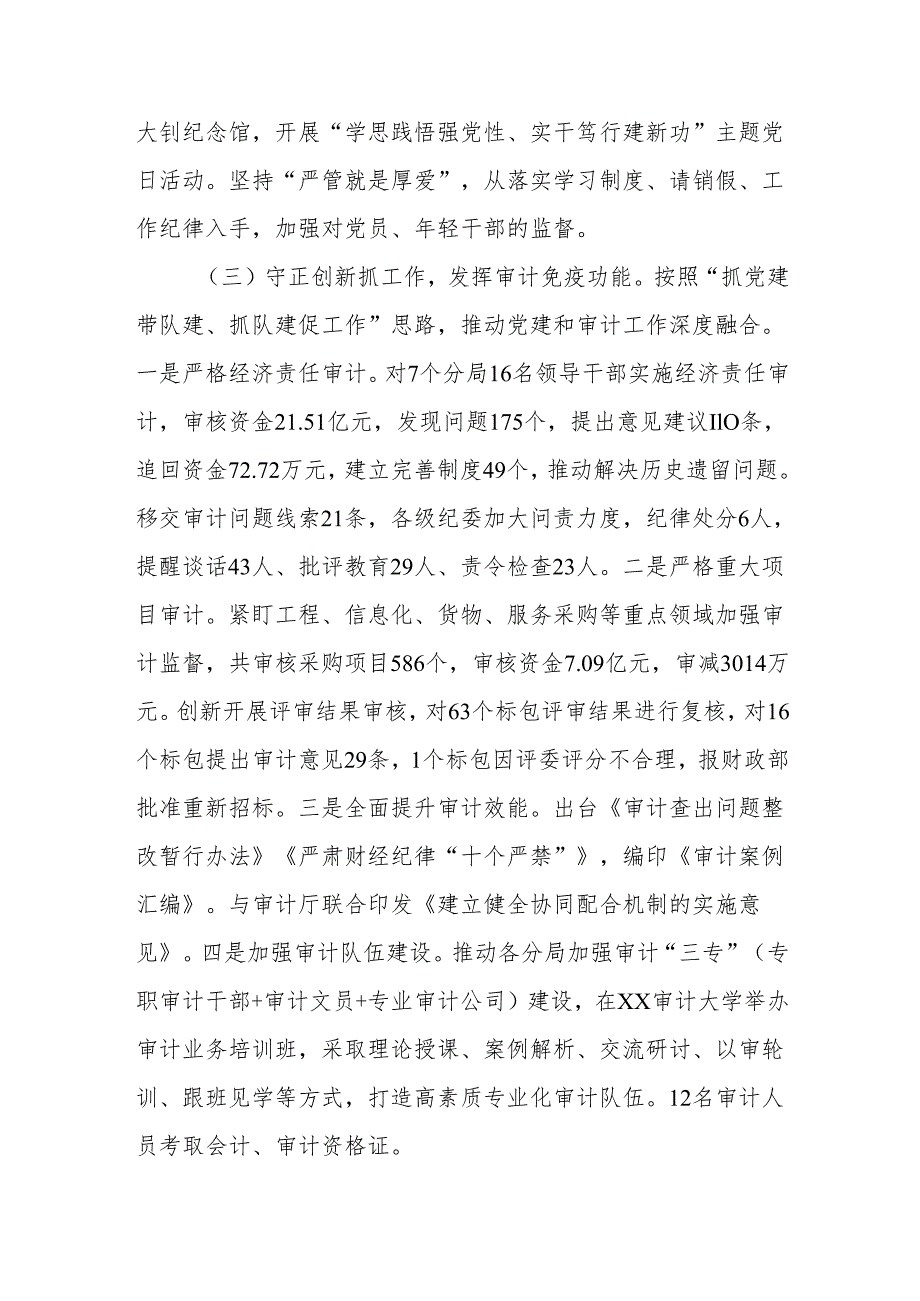 大钊纪念馆，开展“学思践悟强党性、实干笃行建新功”主题党
日活动。坚持“严管就是厚爱”，从落实学习制度、请销假、工
作纪律入手，加强对党员、年轻干部的监督。
（三）守正创新抓工作，发挥审计免疫功能。按照“抓党建
带队建、抓队建促工作”思路，推动党建和审计工作深度融合。
一是严格经济责任审计。对7个分局16名领导干部实施经济责任审
计，审核资金21.51亿元，发现问题175个，提出意见建议IlO条，
追回资金72.72万元，建立完善制度49个，推动解决历史遗留问题。
移交审计问题线索21条，各级纪委加大问责力度，纪律处分6人，
提醒谈话43人、批评教育29人、责令检查23人。二是严格重大项
目审计。紧盯工程、信息化、货物、服务采购等重点领域加强审
计监督，共审核采购项目586个，审核资金7.09亿元，审减3014万
元。创新开展评审结果审核，对63个标包评审结果进行复核，对16
个标包提出审计意见29条，1个标包因评委评分不合理，报财政部
批准重新招标。三是全面提升审计效能。出台《审计查出问题整
改暂行办法》《严肃财经纪律“十个严禁”》，编印《审计案例
汇编》。与审计厅联合印发《建立健全协同配合机制的实施意
见》。四是加强审计队伍建设。推动各分局加强审计“三专”（专
职审计干部+审计文员+专业审计公司）建设，在XX审计大学举办
审计业务培训班，采取理论授课、案例解析、交流研讨、以审轮
训、跟班见学等方式，打造高素质专业化审计队伍。12名审计人
员考取会计、审计资格证。